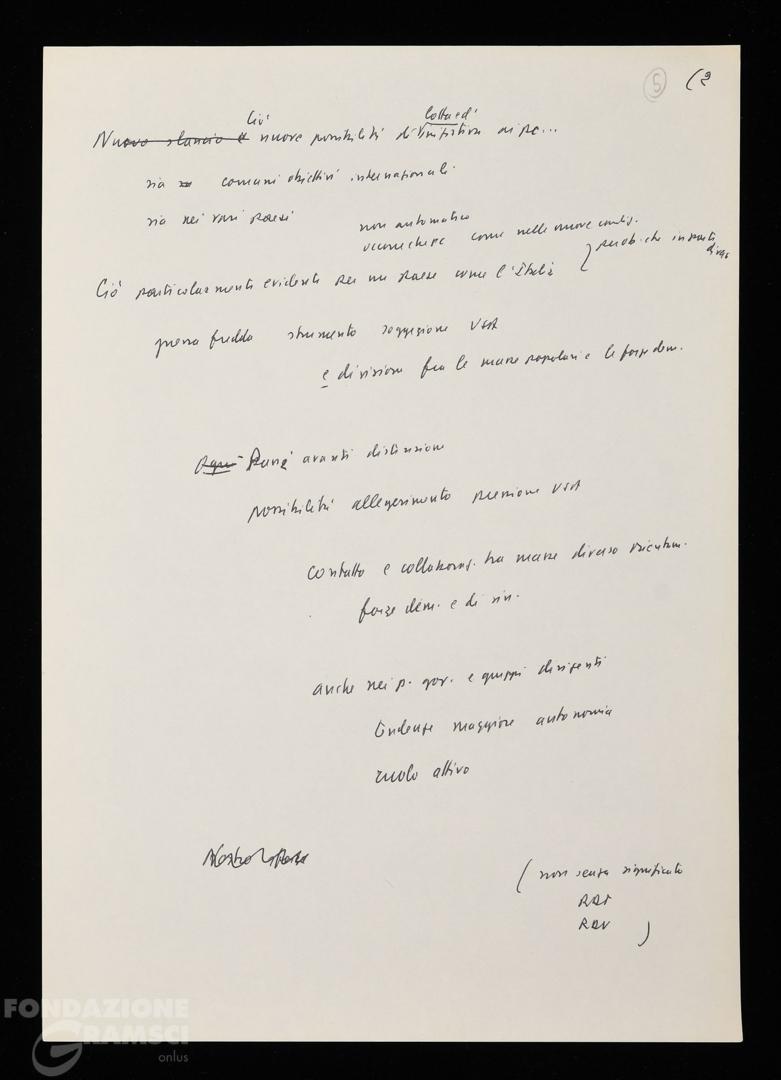 5 (2
Ciò lotta ed
Nuovo slancio e nuove possibilità di iniziativa ai pc...
sia comuni obiettivi internazionali.
sia nei vari paesi
non automatico
come nelle nuove condiz.
Ciò particolarmente evidente per un paese come l'Italia
guerra fredda strumento soggezione USA
e divisione fra le masse popolari e le forze dem.
Ogni Passi avanti distensione
possibilità allegerimento pressione USA
contatto e collaboraz. tra masse diverso orientam.
forze dem. e di sin.
anche nei p. gov. e gruppi dirigenti
tendenze maggiore autonomia
ruolo attivo
(non senza significato
RDT
RDV)
FONDAZIONE
GRAMSCI
onlus